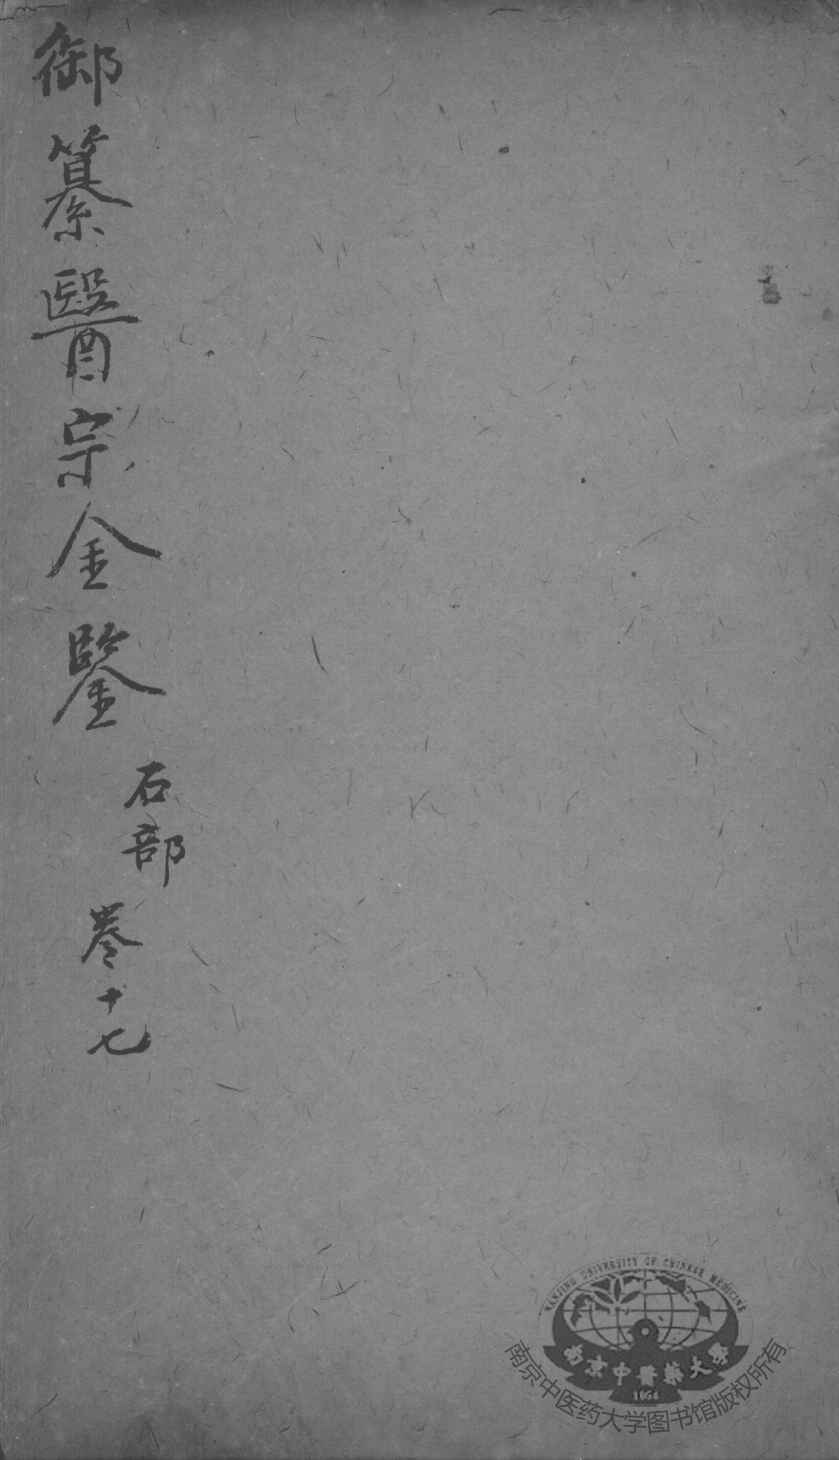 御纂醫宗金鑒
石部
卷十七
NANJING UNIVERSITY OF CHINESE MEDICINE
南京中醫藥大學
1954
南京中医药大学图书馆版权所有